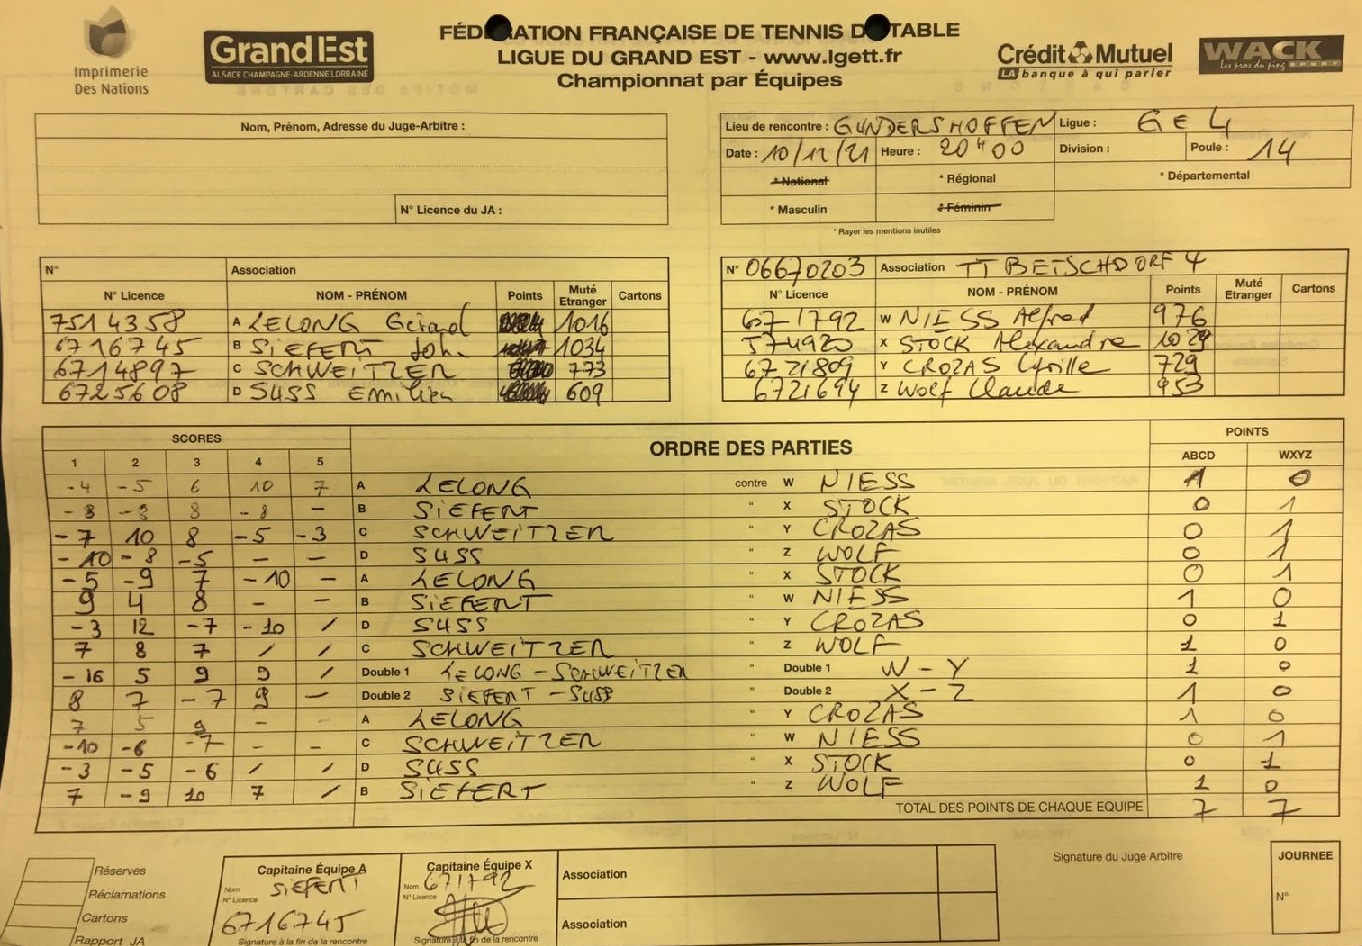 Imprimerie
Des Nations
Grand Est
ALSACE CHAMPAGNE-ARDENNE LORRAINE
FÉDÉRATION FRANÇAISE DE TENNIS DE TABLE
LIGUE DU GRAND EST - www.lgett.fr
Championnat par Équipes
Crédit Mutuel
LA banque à qui parler
WACK
Les pros du ping SPORT
Nom, Prénom, Adresse du Juge-Arbitre :
N° Licence du JA :
Lieu de rencontre : GUNDERSHOFFEN Ligue : GE 4
Date : 10/12/21 Heure : 20h00 Division : Poule : 14
* National * Régional * Départemental
* Masculin * Féminin
* Rayer les mentions inutiles
N° Association
N° Licence NOM - PRÉNOM Points Muté Etranger Cartons
7514358 A LELONG Gérard 1016
6716745 B SIEFERT Joh. 1034
6714897 C SCHWEITZER 773
6725608 D SUSS Emilien 609
N° 06670203 Association TT BETSCHDORF 4
N° Licence NOM - PRÉNOM Points Muté Etranger Cartons
671792 W NIESS Alfred 976
574920 X STOCK Alexandre 1029
6721809 Y CROZAS Cyrille 729
6721694 Z Wolf Claude 953
SCORES ORDRE DES PARTIES POINTS
1 2 3 4 5 ABCD WXYZ
-4 -5 6 10 7 A LELONG contre W NIESS 1 0
-8 -8 8 -8 - B SIEFERT " X STOCK 0 1
-7 10 8 -5 -3 C SCHWEITZER " Y CROZAS 0 1
-10 -8 -5 - - D SUSS " Z WOLF 0 1
-5 -9 7 -10 - A LELONG " X STOCK 0 1
9 4 8 - - B SIEFERT " W NIESS 1 0
-3 12 -7 -10 / D SUSS " Y CROZAS 0 1
7 8 7 / / C SCHWEITZER " Z WOLF 1 0
-16 5 9 9 / Double 1 LELONG - SCHWEITZER " Double 1 W - Y 1 0
8 7 -7 9 - Double 2 SIEFERT - SUSS " Double 2 X - Z 1 0
7 5 9 - - A LELONG " Y CROZAS 1 0
-10 -6 -7 - - C SCHWEITZER " W NIESS 0 1
-3 -5 -6 / / D SUSS " X STOCK 0 1
7 -9 10 7 / B SIEFERT " Z WOLF 1 0
TOTAL DES POINTS DE CHAQUE EQUIPE 7 7
Réserves
Réclamations
Cartons
Rapport JA
Capitaine Équipe A
Nom SIEFERT
N° Licence
6716745
Signature à la fin de la rencontre
Capitaine Équipe X
Nom 671792
N° Licence
Signature à la fin de la rencontre
Association
Association
Signature du Juge Arbitre
JOURNEE
N°